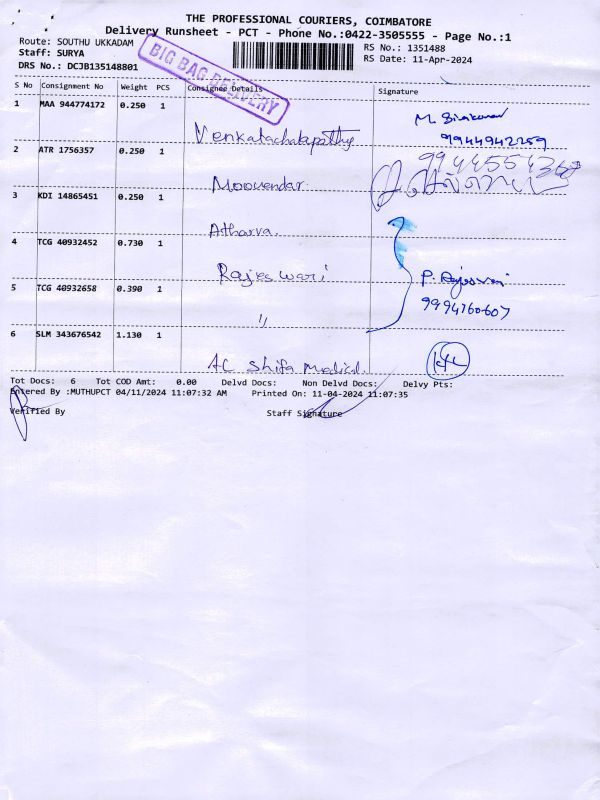 THE PROFESSIONAL COURIERS, COIMBATORE
Delivery Runsheet - PCT - Phone No.:0422-3505555 - Page No.:1
Route: SOUTHU UKKADAM
RS No.: 1351488
Staff: SURYA
RS Date: 11-Apr-2024
DRS No.: DCJB135148801
BIG BAG DELIVERY
S No Consignment No Weight PCS Consignee Details Signature
1 MAA 944774172 0.250 1
M. Sivakumar
Venkatachalapathy 9944942259
2 ATR 1756357 0.250 1
Moovendar
3 KDI 14865451 0.250 1
Atharva.
4 TCG 40932452 0.730 1
Rajeswari P. Rajeswari
5 TCG 40932658 0.390 1
9994760607
"
6 SLM 343676542 1.130 1
AC Shifa Medical.
Tot Docs: 6 Tot COD Amt: 0.00 Delvd Docs: Non Delvd Docs: Delvy Pts:
Entered By :MUTHUPCT 04/11/2024 11:07:32 AM Printed On: 11-04-2024 11:07:35
Verified By Staff Signature